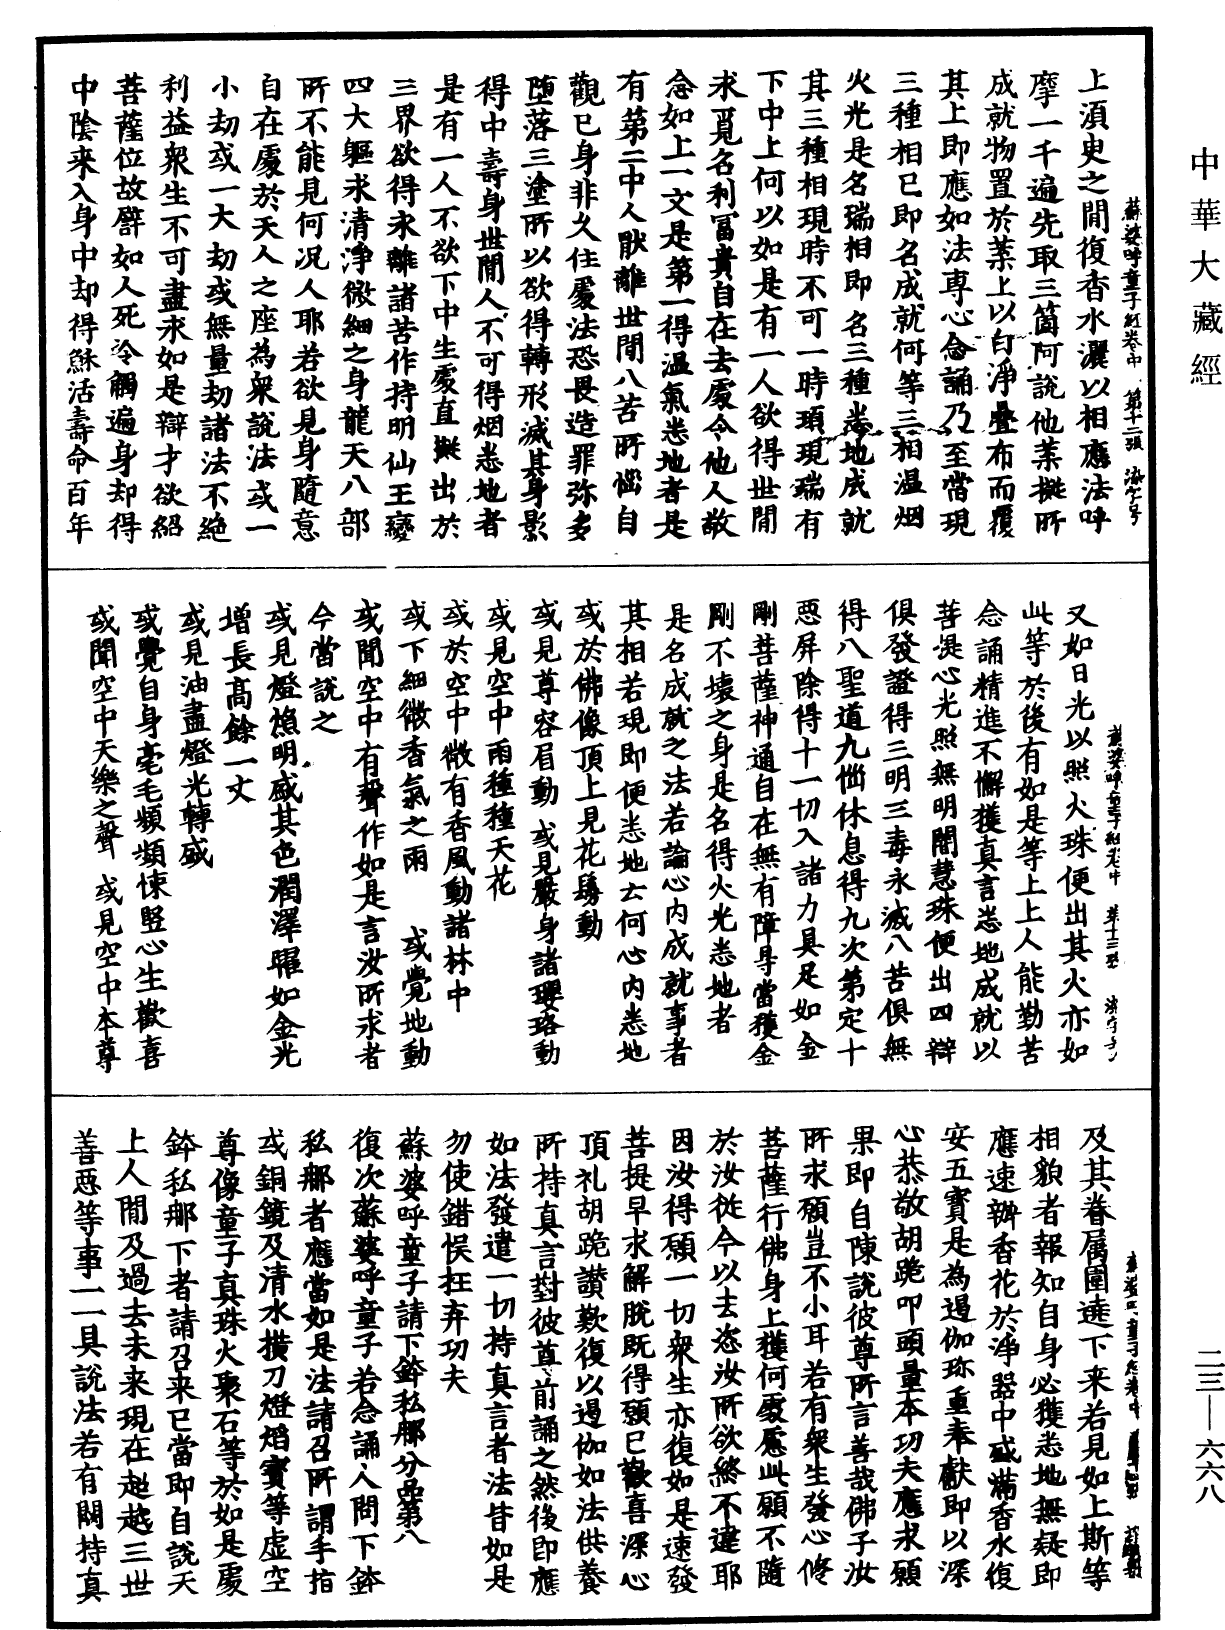 中華大藏經
蘇婆呼童子經卷中 第十二張 染字号
上湏臾之間復香水灑以相應法呼
摩一千遍先取三箇阿說他葉擬所
成就物置於葉上以白淨疊布而覆
其上即應如法專心念誦乃至當現
三種相已即名成就何等三相温烟
火光是名瑞相即名三種悉地成就
其三種相現時不可一時頭現瑞有
下中上何以如是有一人欲得世間
求覓名利冨貴自在去處令他人敬
念如上一文是第一得温氣悉地者是
有第二中人猒離世間八苦所惱自
觀已身非久住處法恐畏造罪弥多
墮落三塗所以欲得轉形滅其身影
得中壽身世間人不可得烟悉地者
是有一人不欲下中生處直擬出於
三界欲得永離諸苦作持明仙王變
四大軀求清淨微細之身龍天八部
所不能見何况人耶若欲見身隨意
自在處於天人之座為衆說法或一
小劫或一大劫或無量劫諸法不絶
利益衆生不可盡求如是辯才欲紹
菩薩位故譬如人死冷觸遍身却得
中陰来入身中却得穌活壽命百年
蘇婆呼童子經卷中 第十三張 染字号
又如日光以照火珠便出其火亦如
此等於後有如是等上上人能勤苦
念誦精進不懈獲真言悉地成就以
菩提心光照無明闇慧珠便出四辯
俱發證得三明三毒永滅八苦俱無
得八聖道九惱休息得九次第定十
惡屏除得十一切入諸力具足如金
剛菩薩神通自在無有障㝵當獲金
剛不壞之身是名得火光悉地者
是名成就之法若論心内成就事者
其相若現即便悉地云何心内悉地
或於佛像頂上見花鬘動
或見尊容眉動 或見嚴身諸瓔珞動
或見空中雨種種天花
或於空中微有香風動諸林中
或下細微香氣之雨 或覺地動
或聞空中有聲作如是言汝所求者
今當說之
或見燈焰明盛其色潤澤曜如金光
增長髙餘一丈
或見油盡燈光轉盛
或覺自身毫毛頻頻悚竪心生歡喜
或聞空中天樂之聲 或見空中本尊
及其眷屬圍遶下来若見如上斯等
相貌者報知自身必獲悉地無疑即
應速辦香花於淨器中盛滿香水復
安五寶是為遏伽珎重奉獻即以深
心恭敬胡跪叩頭量本功夫應求願
果即自陳說彼尊所言善哉佛子汝
所求願豈不小耳若有衆生發心修
菩薩行佛身上獲何處慮此願不隨
於汝從今以去恣汝所欲終不違耶
因汝得願一切衆生亦復如是速發
菩提早求解脫既得願已歡喜深心
頂礼胡跪讃歎復以遏伽如法供養
所持真言對彼尊前誦之然後即應
如法發遣一切持真言者法皆如是
勿使錯悮抂弃功夫
蘇婆呼童子請下鉢私那分品第八
復次蘇婆呼童子若念誦人問下鉢
私那者應當如是法請召所謂手指
或銅鏡及清水撗刀燈焰寶等虛空
尊像童子真珠火聚石等於如是處
鉢私那下者請召来已當即自說天
上人間及過去未来現在超越三世
善惡等事一一具說法若有闕持真
二三—六六八